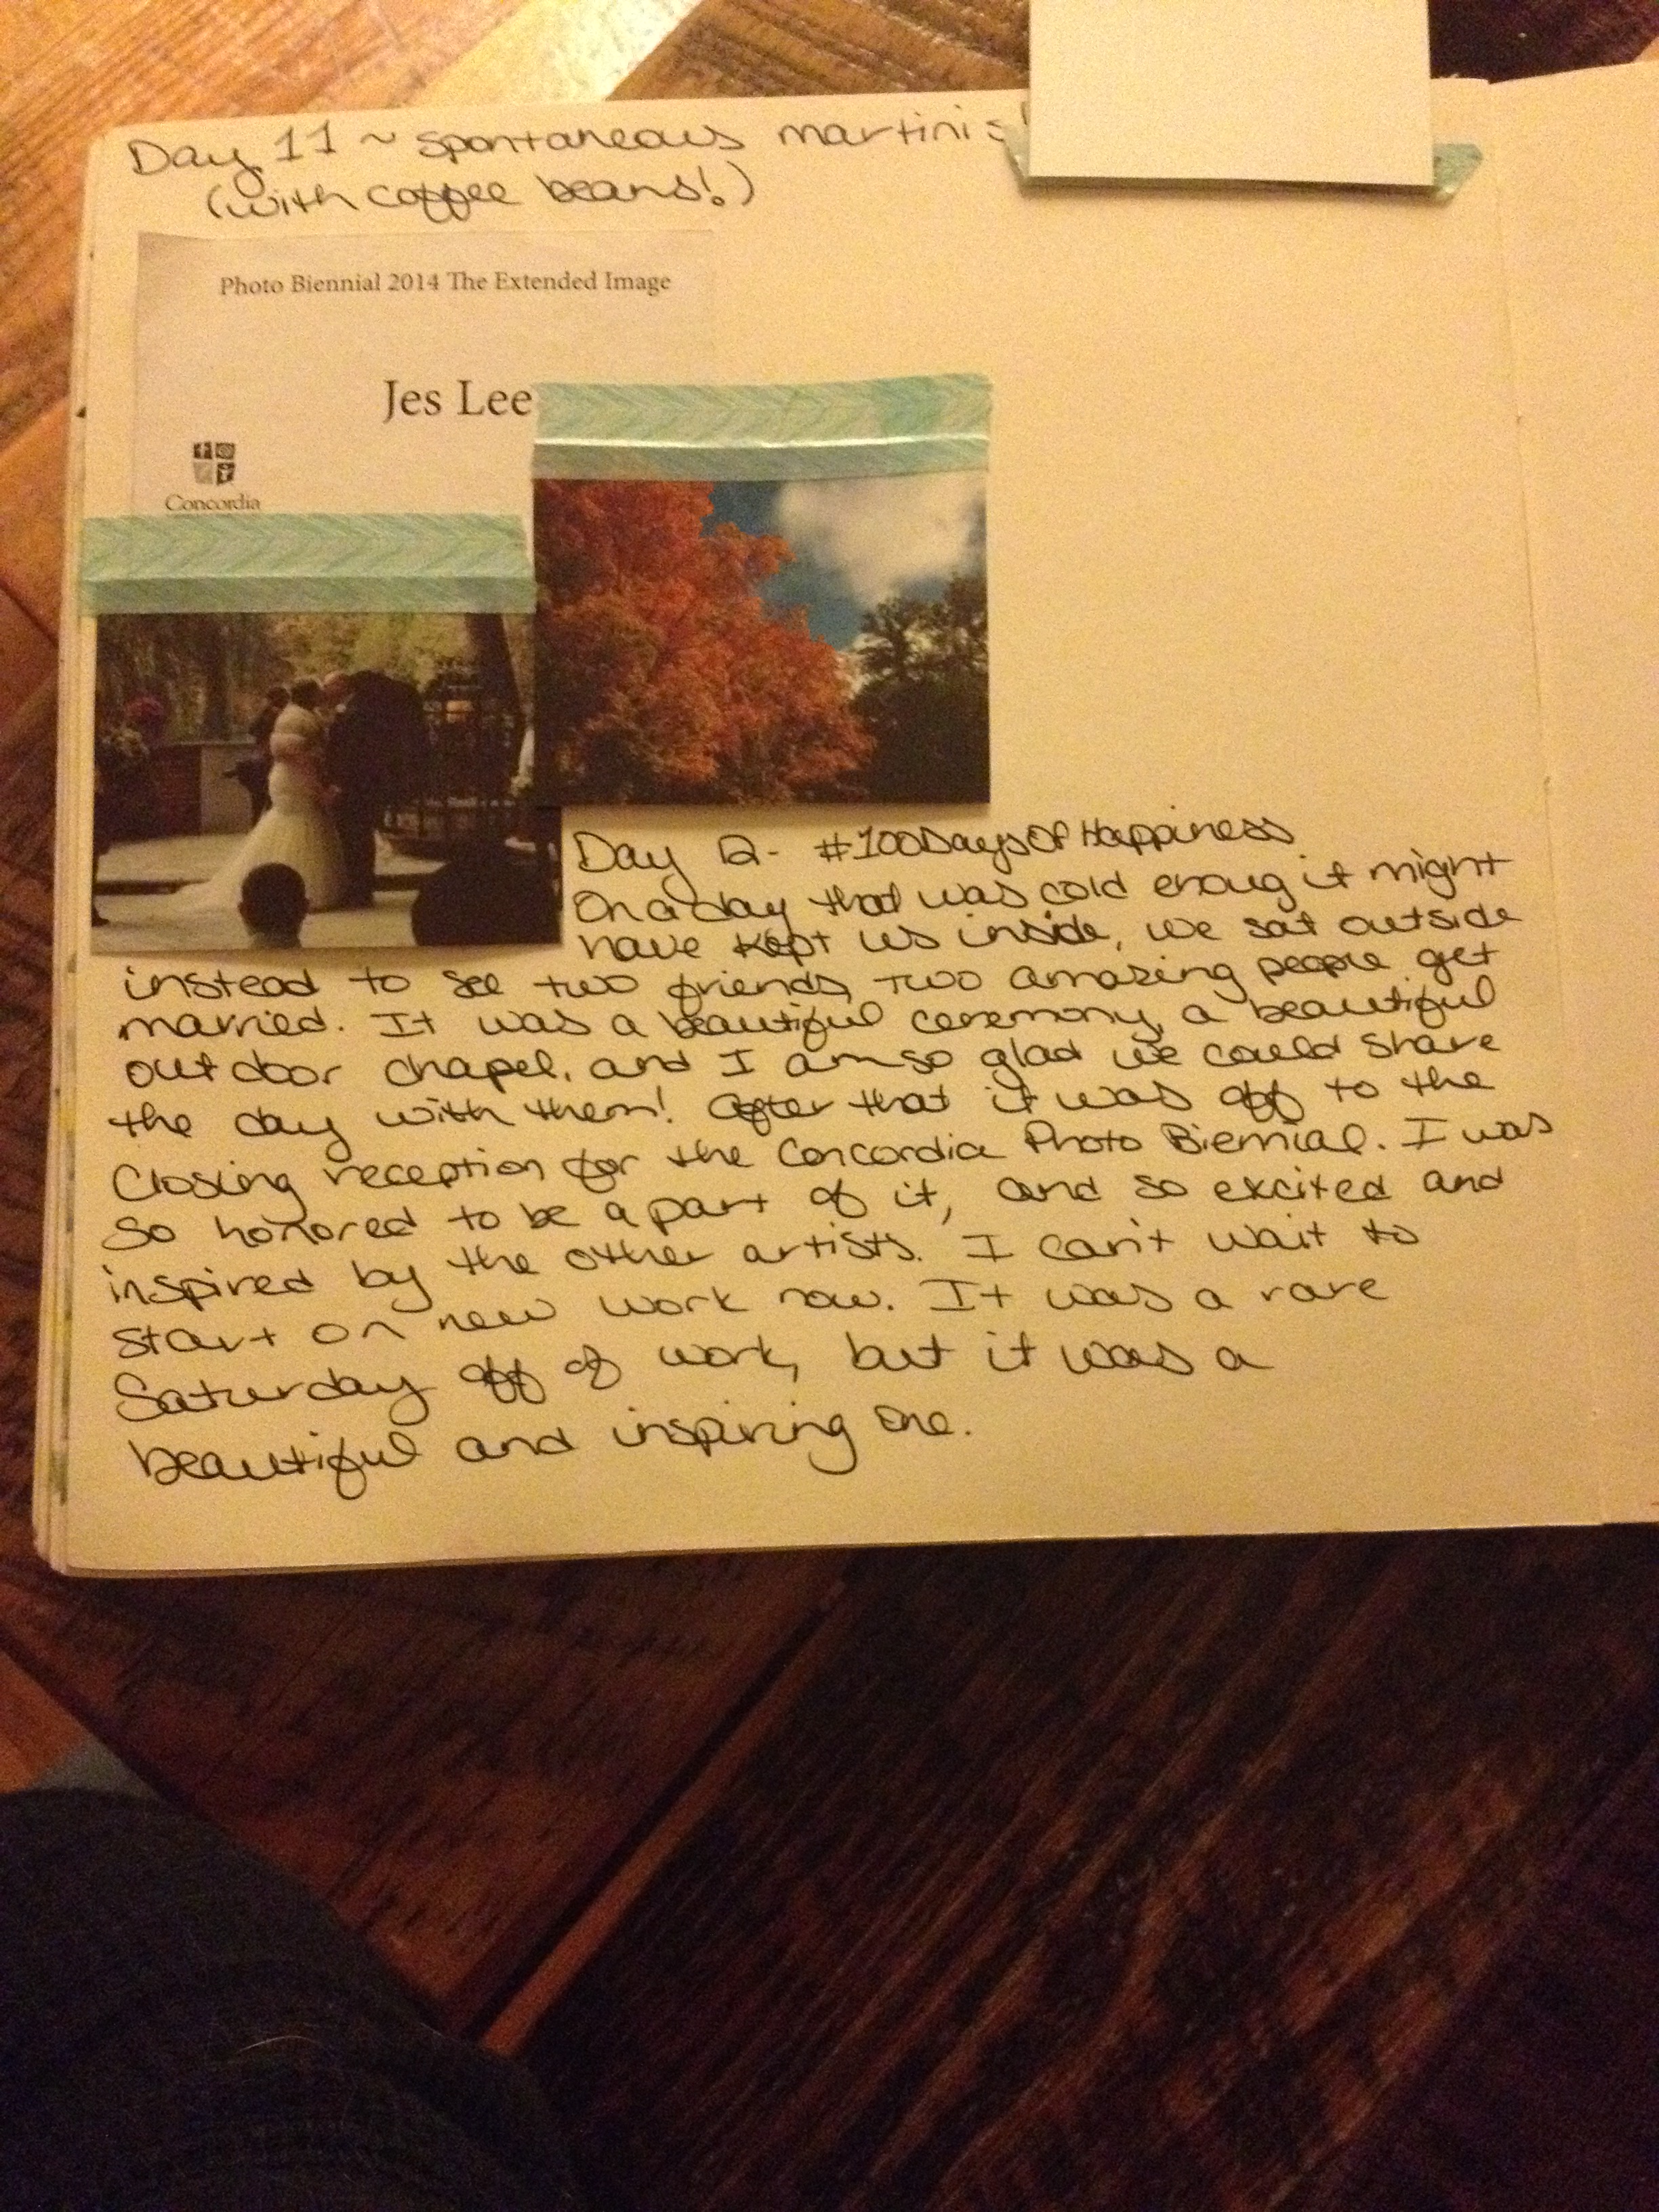 Day 11 ~ spontaneous martinis
(with coffee beans!)
Photo Biennial 2014 The Extended Image
Jes Lee
Concordia
Day 12 - #100DaysOfHappiness
On a day that was cold enoug it might
have kept us inside, we sat outside
instead to see two friends, two amazing people get
married. It was a beautiful ceremony, a beautiful
outdoor chapel, and I am so glad we could share
the day with them! After that it was off to the
Closing reception for the Concordia Photo Biennial. I was
so honored to be a part of it, and so excited and
inspired by the other artists. I can't wait to
start on new work now. It was a rare
Saturday off of work, but it was a
beautiful and inspiring one.